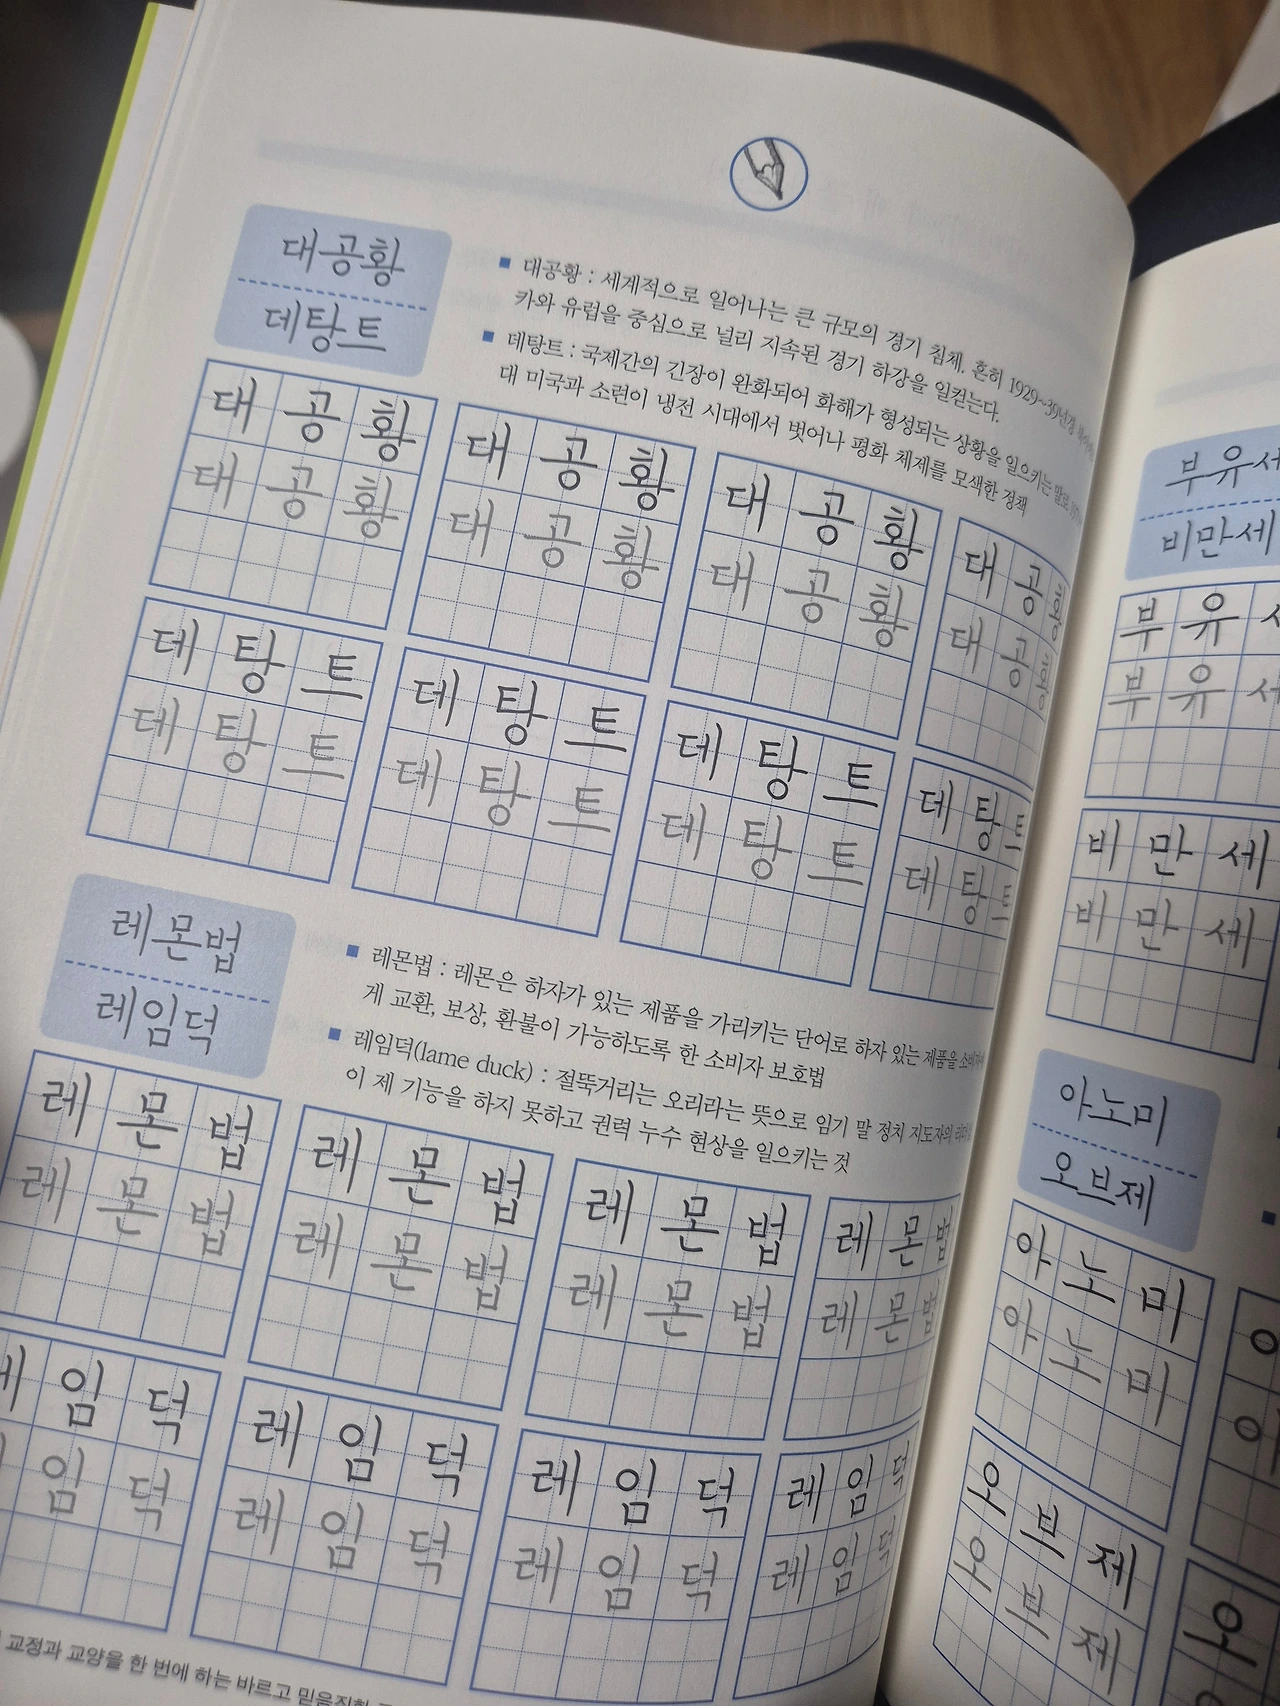 대공황
데탕트
■ 대공황 : 세계적으로 일어나는 큰 규모의 경기 침체. 흔히 1929~39년경
카와 유럽을 중심으로 널리 지속된 경기 하강을 일컫는다.
■ 데탕트 : 국제간의 긴장이 완화되어 화해가 형성되는 상황을 일으키는 말로
대 미국과 소련이 냉전 시대에서 벗어나 평화 체제를 모색한 정책
대공황 대공황 대공황 대공황
대공황 대공황 대공황 대공황
데탕트 데탕트 데탕트 데탕트
데탕트 데탕트 데탕트 데탕트
레몬법
레임덕
■ 레몬법 : 레몬은 하자가 있는 제품을 가리키는 단어로 하자 있는 제품을
게 교환, 보상, 환불이 가능하도록 한 소비자 보호법
■ 레임덕(lame duck) : 절뚝거리는 오리라는 뜻으로 임기 말 정치 지도자의
이 제 기능을 하지 못하고 권력 누수 현상을 일으키는 것
레몬법 레몬법 레몬법 레몬법
레몬법 레몬법 레몬법 레몬법
레임덕 레임덕 레임덕 레임덕
임덕 레임덕 레임덕 레임덕
교정과 교양을 한 번에 하는 바르고 믿음직한
부유세
비만세
부유세
부유세
비만세
비만세
아노미
오브제
아노미
아노미
오브제
오브제